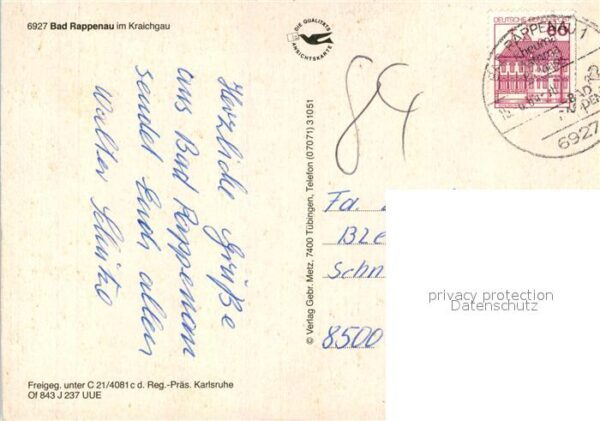 6927 Bad Rappenau im Kraichgau
DIE QUALITÄTS
ANSICHTSKARTE
DEUTSCHE
60
BAD RAPPENAU 1
6927
84
Herzliche Grüße
aus Bad Rappenau
sendet Euch allen
Walter
© Verlag Gebr. Metz, 7400 Tübingen, Telefon (07071) 31051
Fa.
Bze
Schn
8500
privacy protection
Datenschutz
Freigeg. unter C 21/4081 c d. Reg.-Präs. Karlsruhe
Of 843 J 237 UUE